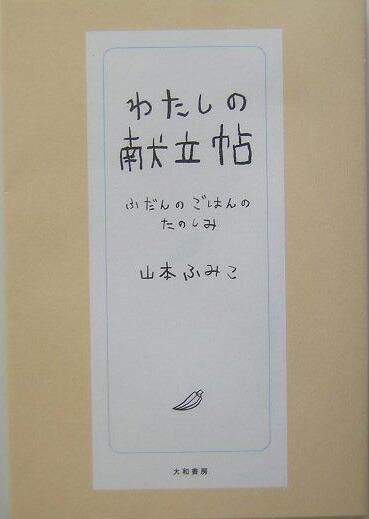 わたしの
献立帖
ふだんのごはんの
たのしみ
山本ふみこ
大和書房